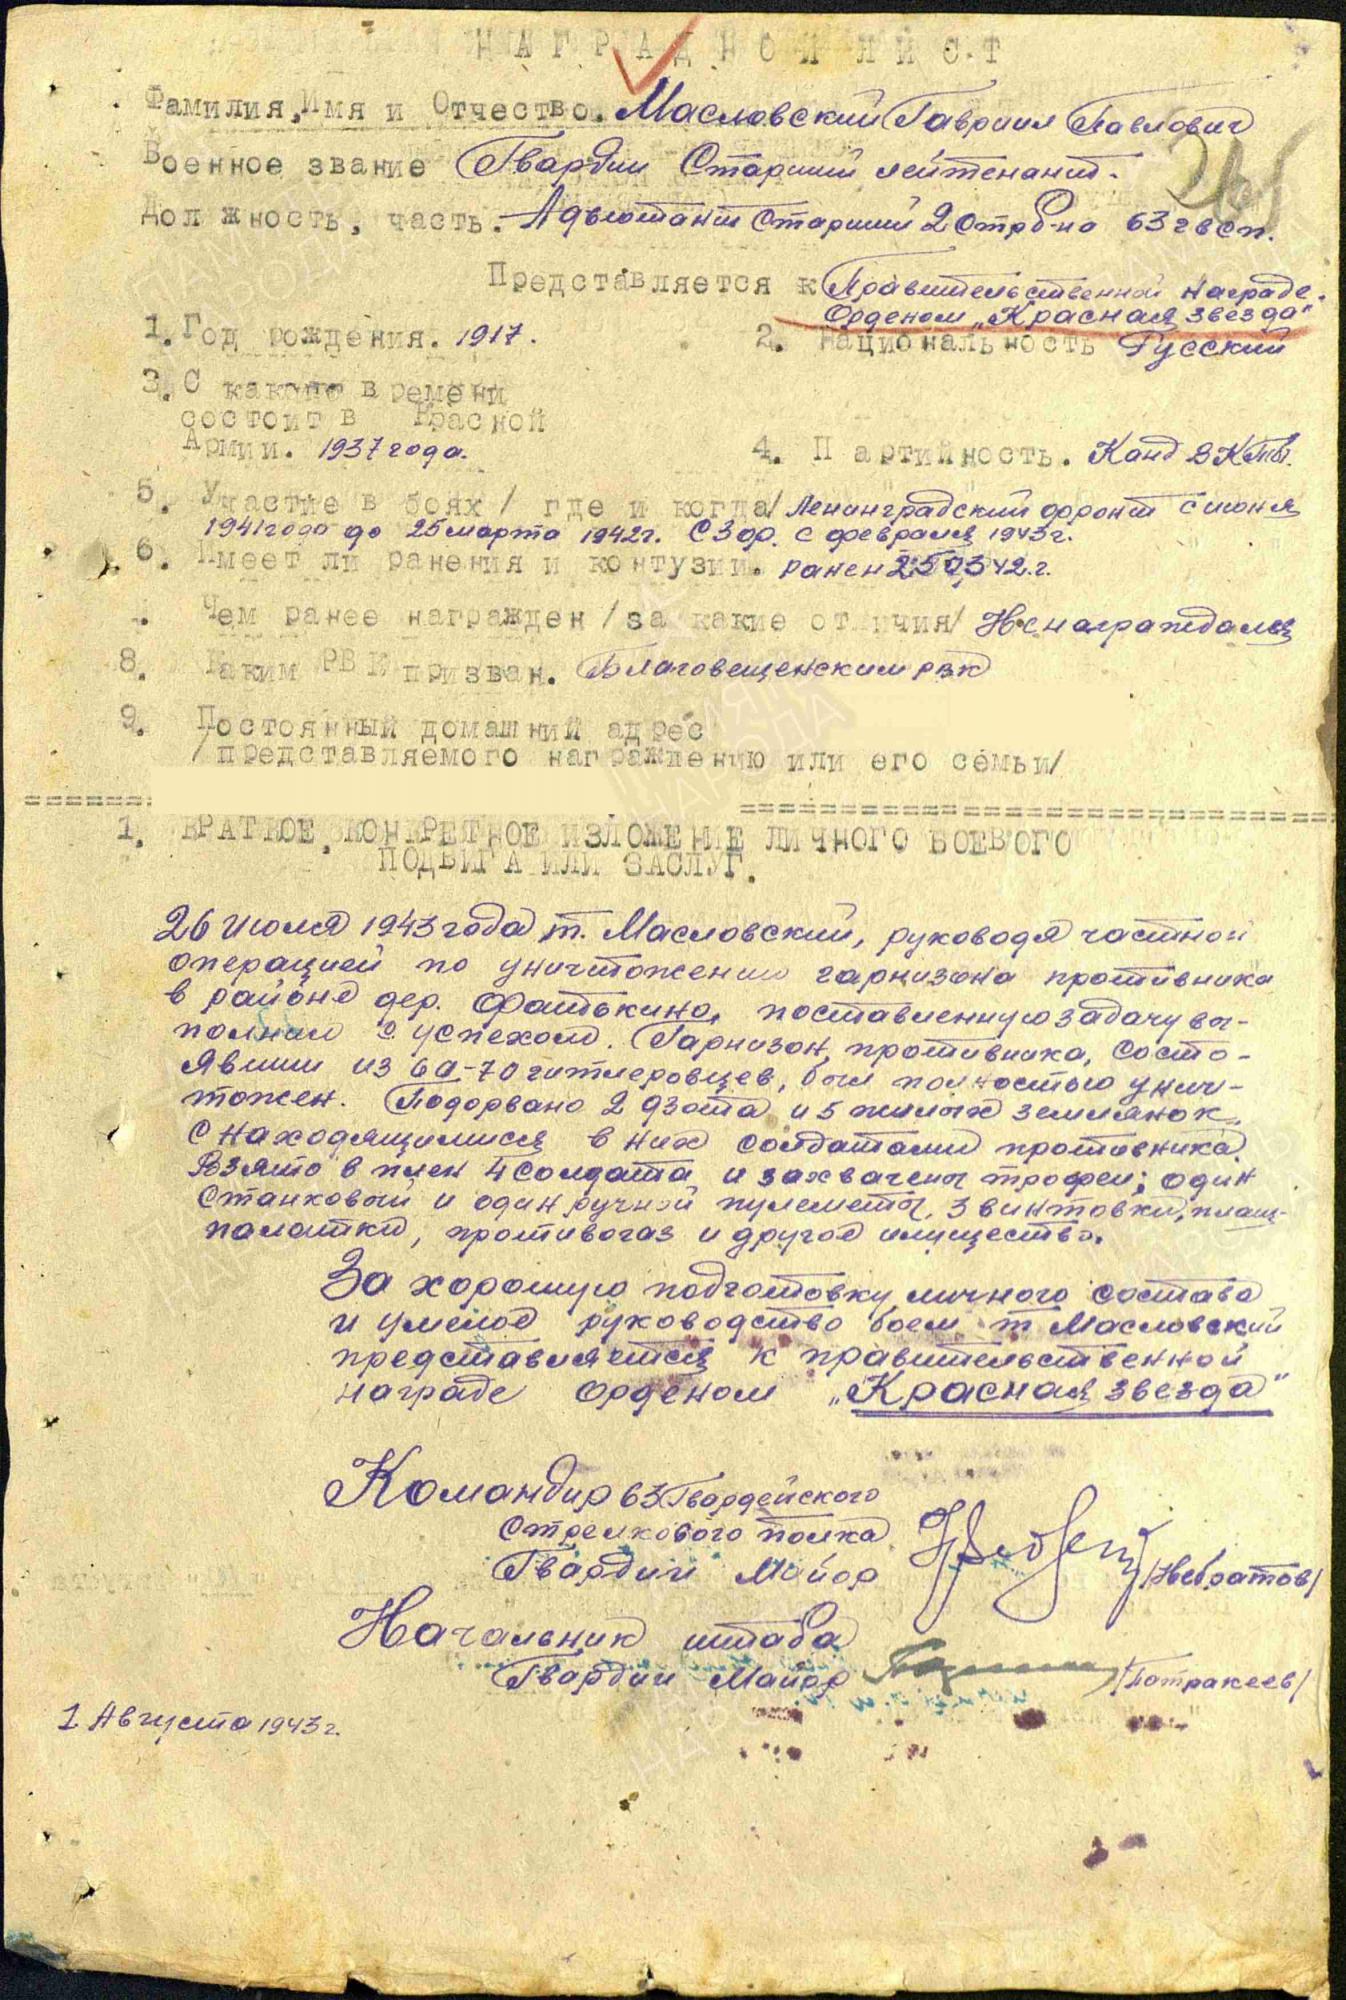 НАГРАДНОЙ ЛИСТ
Фамилия, Имя и Отчество. Масловский Гавриил Павлович
Военное звание Гвардии Старший лейтенант.
Должность, часть. Адъютант Старший 2 Стрб-на 63 гвсп.
Представляется к Правительственной награде.
Орденом „Красная звезда"
1. Год рождения. 1917. 2. Национальность Русский
3. С какого времени
состоит в Красной
Армии. 1937 года. 4. Партийность. Канд ВКПб.
5. Участие в боях / где и когда/ Ленинградский фронт с июня
1941 года до 25 марта 1942г. СЗФр. с февраля 1943г.
6. Имеет ли ранения и контузии. ранен 25 03 42.г.
Чем ранее награжден /за какие отличия/ Ненаграждался
8. Каким РВК призван. Благовещенским рвк
9. Постоянный домашний адрес
/представляемого награждению или его семьи/
1. КРАТКОЕ, КОНКРЕТНОЕ ИЗЛОЖЕНИЕ ЛИЧНОГО БОЕВОГО
ПОДВИГА ИЛИ ЗАСЛУГ.
26 июля 1943 года т. Масловский, руководя частной
операцией по уничтожению гарнизона противника
в районе дер. Фатькино, поставленную задачу вы-
полнил с успехом. Гарнизон противника, состо-
явший из 60-70 гитлеровцев, был полностью унич-
тожен. Подорвано 2 дзота и 5 жилых землянок
с находящимися в них солдатами противника.
Взято в плен 4 солдата и захвачены трофеи; один
станковый и один ручной пулеметы, 3 винтовки, плащ-
палатки, противогаз и другое имущество.
За хорошую подготовку личного состава
и умелое руководство боем т Масловский
представляется к правительственной
награде орденом „Красная звезда"
Командир 63 Гвардейского
Стрелкового полка
Гвардии Майор /Небратов/
Начальник штаба
Гвардии Майор /Патракеев/
1 Августа 1943г.